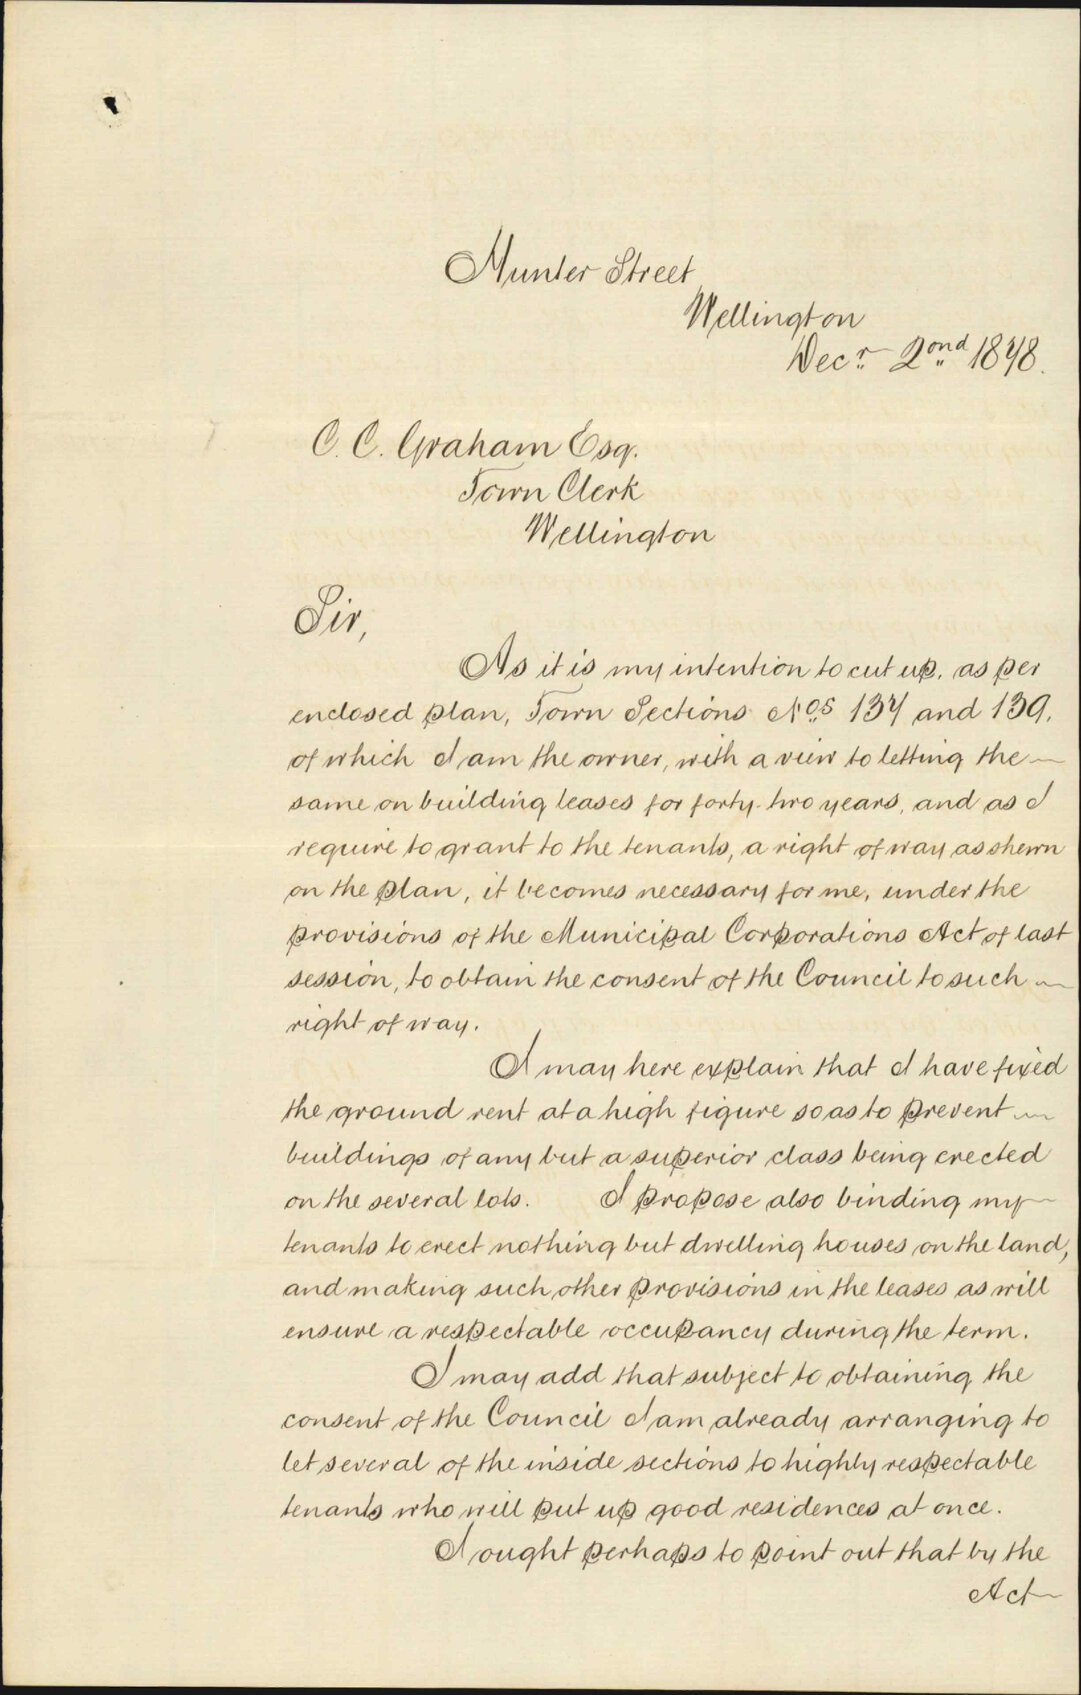 Hunter Street
Wellington
Decr 2ond 1878.
C. C. Graham Esq.
Town Clerk
Wellington
Sir,
As it is my intention to cut up, as per
enclosed plan, Town Sections Nos 137 and 139,
of which I am the owner, with a view to letting the
same on building leases for forty-two years, and as I
require to grant to the tenants, a right of way as shewn
on the plan, it becomes necessary for me, under the
provisions of the Municipal Corporations Act of last
session, to obtain the consent of the Council to such
right of way.
I may here explain that I have fixed
the ground rent at a high figure so as to prevent
buildings of any but a superior class being erected
on the several lots. I propose also binding my
tenants to erect nothing but dwelling houses on the land,
and making such other provisions in the leases as will
ensure a respectable occupancy during the term.
I may add that subject to obtaining the
consent of the Council I am already arranging to
let several of the inside sections to highly respectable
tenants who will put up good residences at once.
I ought perhaps to point out that by the
Act